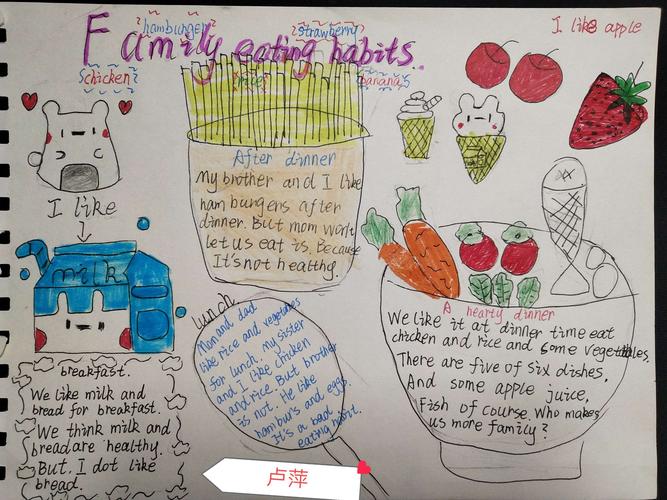 hamburger
strawberry
I like apple
Family eating habits.
chicken
rice
bananas
After dinner
My brother and I like
hamburgers after
dinner. But mom won't
let us eat is. Because
It's not healthy.
I like
milk
breakfast.
We like milk and
bread for breakfast.
We think milk and
bread are healthy.
But. I dot like
bread.
lunch
Mom and dad
like rice and vegetables
for lunch. My sister
and I like chicken
and rice. But brother
is not. He like
hamburs and eggs.
It's a bad
eating habit.
A hearty dinner
We like it at dinner time eat
chicken and rice and some vegetables.
There are five of six dishes,
And some apple juice,
Fish of course. Who makes
us more family?
卢萍